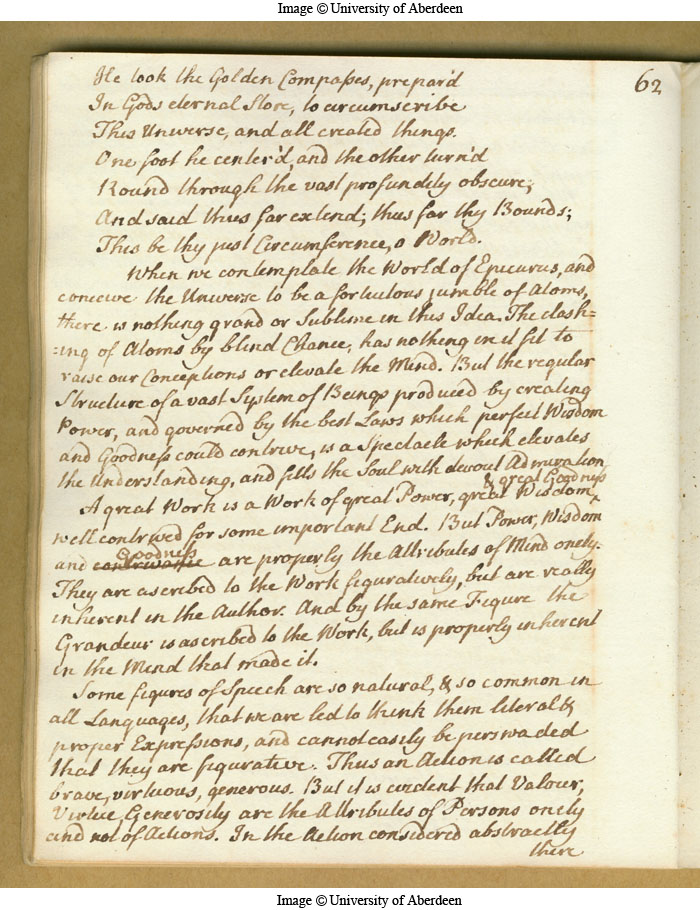 Image © University of Aberdeen
62
He took the Golden Compasses, prepar'd
In Gods eternal Store, to circumscribe
This Universe, and all created things.
One foot he center'd, and the other turn'd
Round through the vast profundity obscure;
And said thus far extend; thus far thy Bounds;
This be thy just Circumference, o World.
When we contemplate the World of Epicurus, and
conceive the Universe to be a fortuitous jumble of Atoms,
there is nothing grand or Sublime in this Idea. The clash=
=ing of Atoms by blind Chance, has nothing in it fit to
raise our Conceptions or elevate the Mind. But the regular
Structure of a vast System of Beings produced by creating
Power, and governed by the best Laws which perfect Wisdom
and Goodness could contrive, is a Spectacle which elevates
the Understanding, and fills the Soul with devout Admiration
& great Goodness
A great Work is a Work of great Power, great Wisdom,
well contrived for some important End. But Power, Wisdom
Goodness
and contrivance are properly the Attributes of Mind onely.
They are ascribed to the Work figuratively, but are really
inherent in the Author. And by the same Figure the
Grandeur is ascribed to the Work, but is properly inherent
in the Mind that made it.
Some figures of Speech are so natural, & so common in
all Languages, that we are led to think them literal &
proper Expressions, and cannot easily be perswaded
that they are figurative. Thus an Action is called
brave, virtuous, generous. But it is evident that Valour,
Virtue, Generosity are the Attributes of Persons onely
and not of Actions. In the Action considered abstractly
there
Image © University of Aberdeen